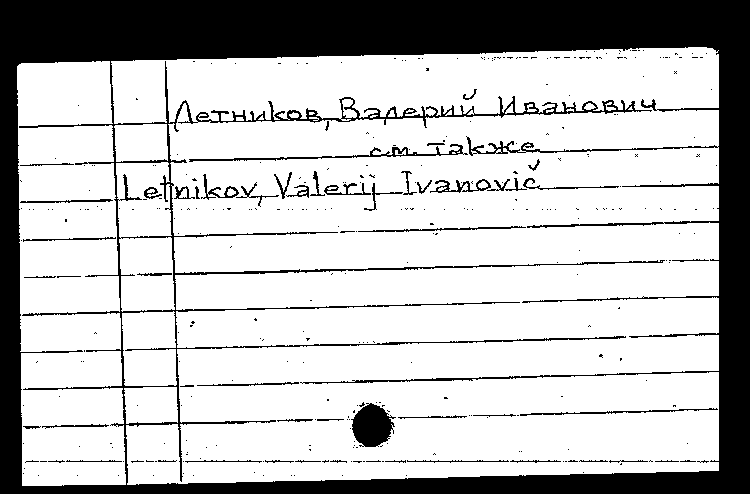 Летников, Валерий Иванович
см. также
Letnikov, Valerij Ivanovič